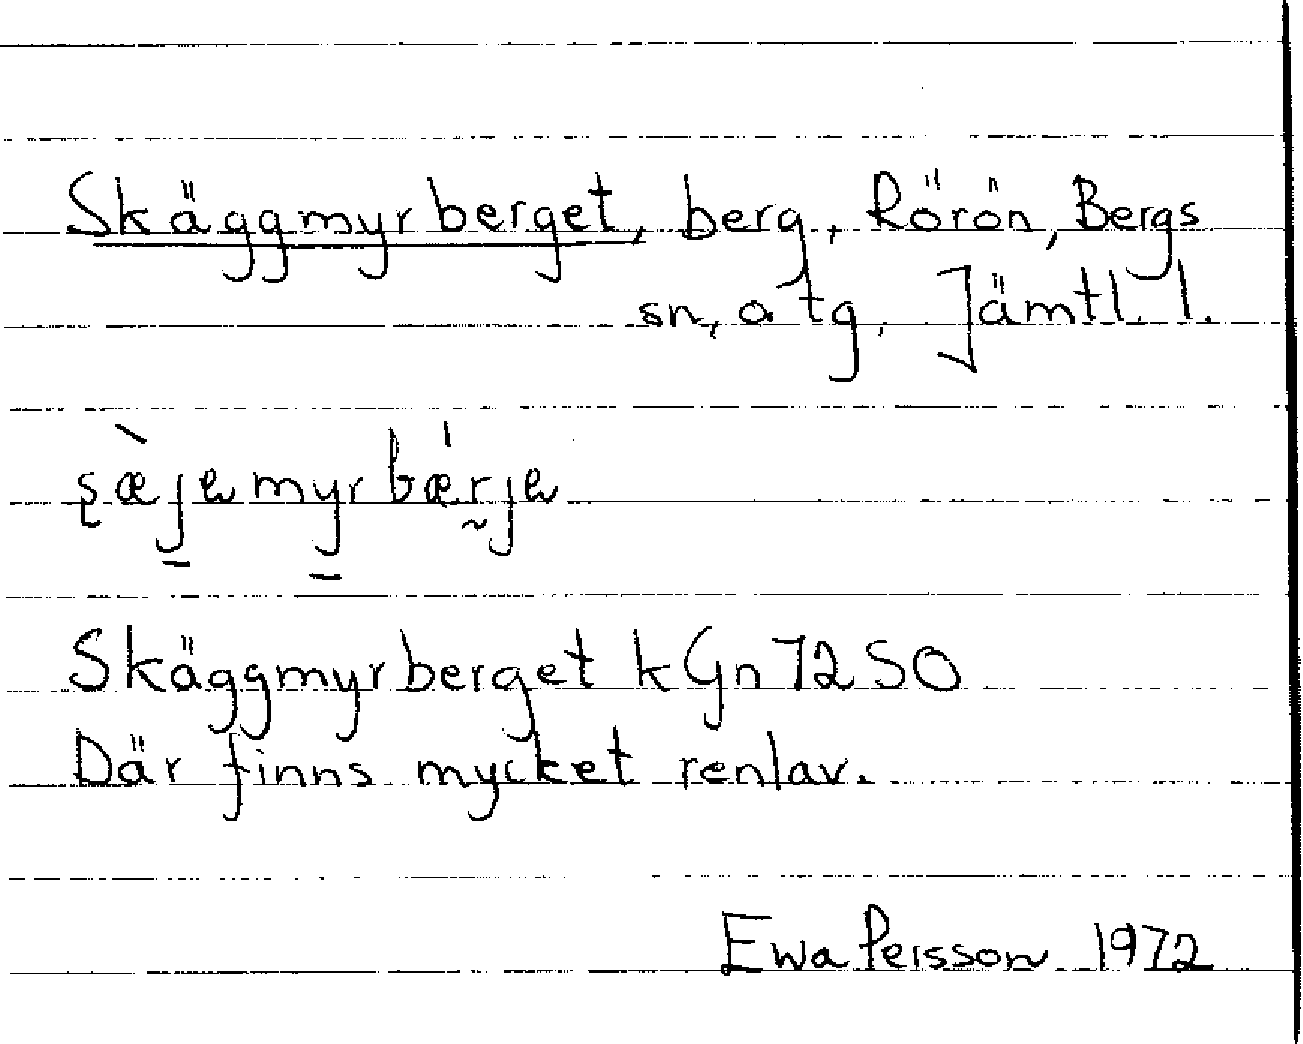 Skäggmyrberget, berg, Rörön, Bergs
sn, o tg, Jämtl. l.
Skäggmyrberget kGn 72 SO
Där finns mycket renlav.
Ewa Persson 1972